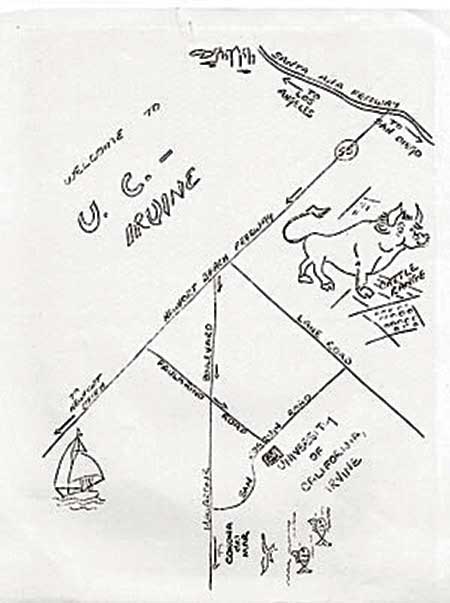 SANTA ANA FREEWAY
TO
LOS
ANGELES
TO
SAN DIEGO
55
WELCOME TO
U. C. -
IRVINE
NEWPORT BEACH FREEWAY
CATTLE
RANGE
LANE ROAD
BOULEVARD
PALISADES
ROAD
TO
NEWPORT
BEACH
JAMBOREE ROAD
UNIVERSITY
OF
CALIFORNIA,
IRVINE
SAN
TO
CORONA
DEL
MAR